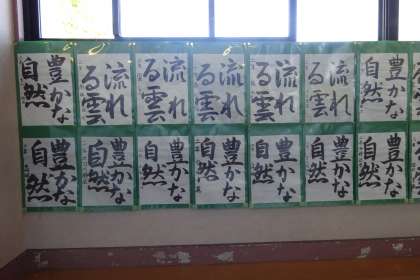 豊かな
自然
流れ
る雲
流れ
る雲
流れ
る雲
流れ
る雲
流れ
る雲
豊かな
自然
豊かな
自然
豊かな
自然
豊かな
自然
豊かな
自然
豊かな
自然
豊かな
自然
豊かな
自然